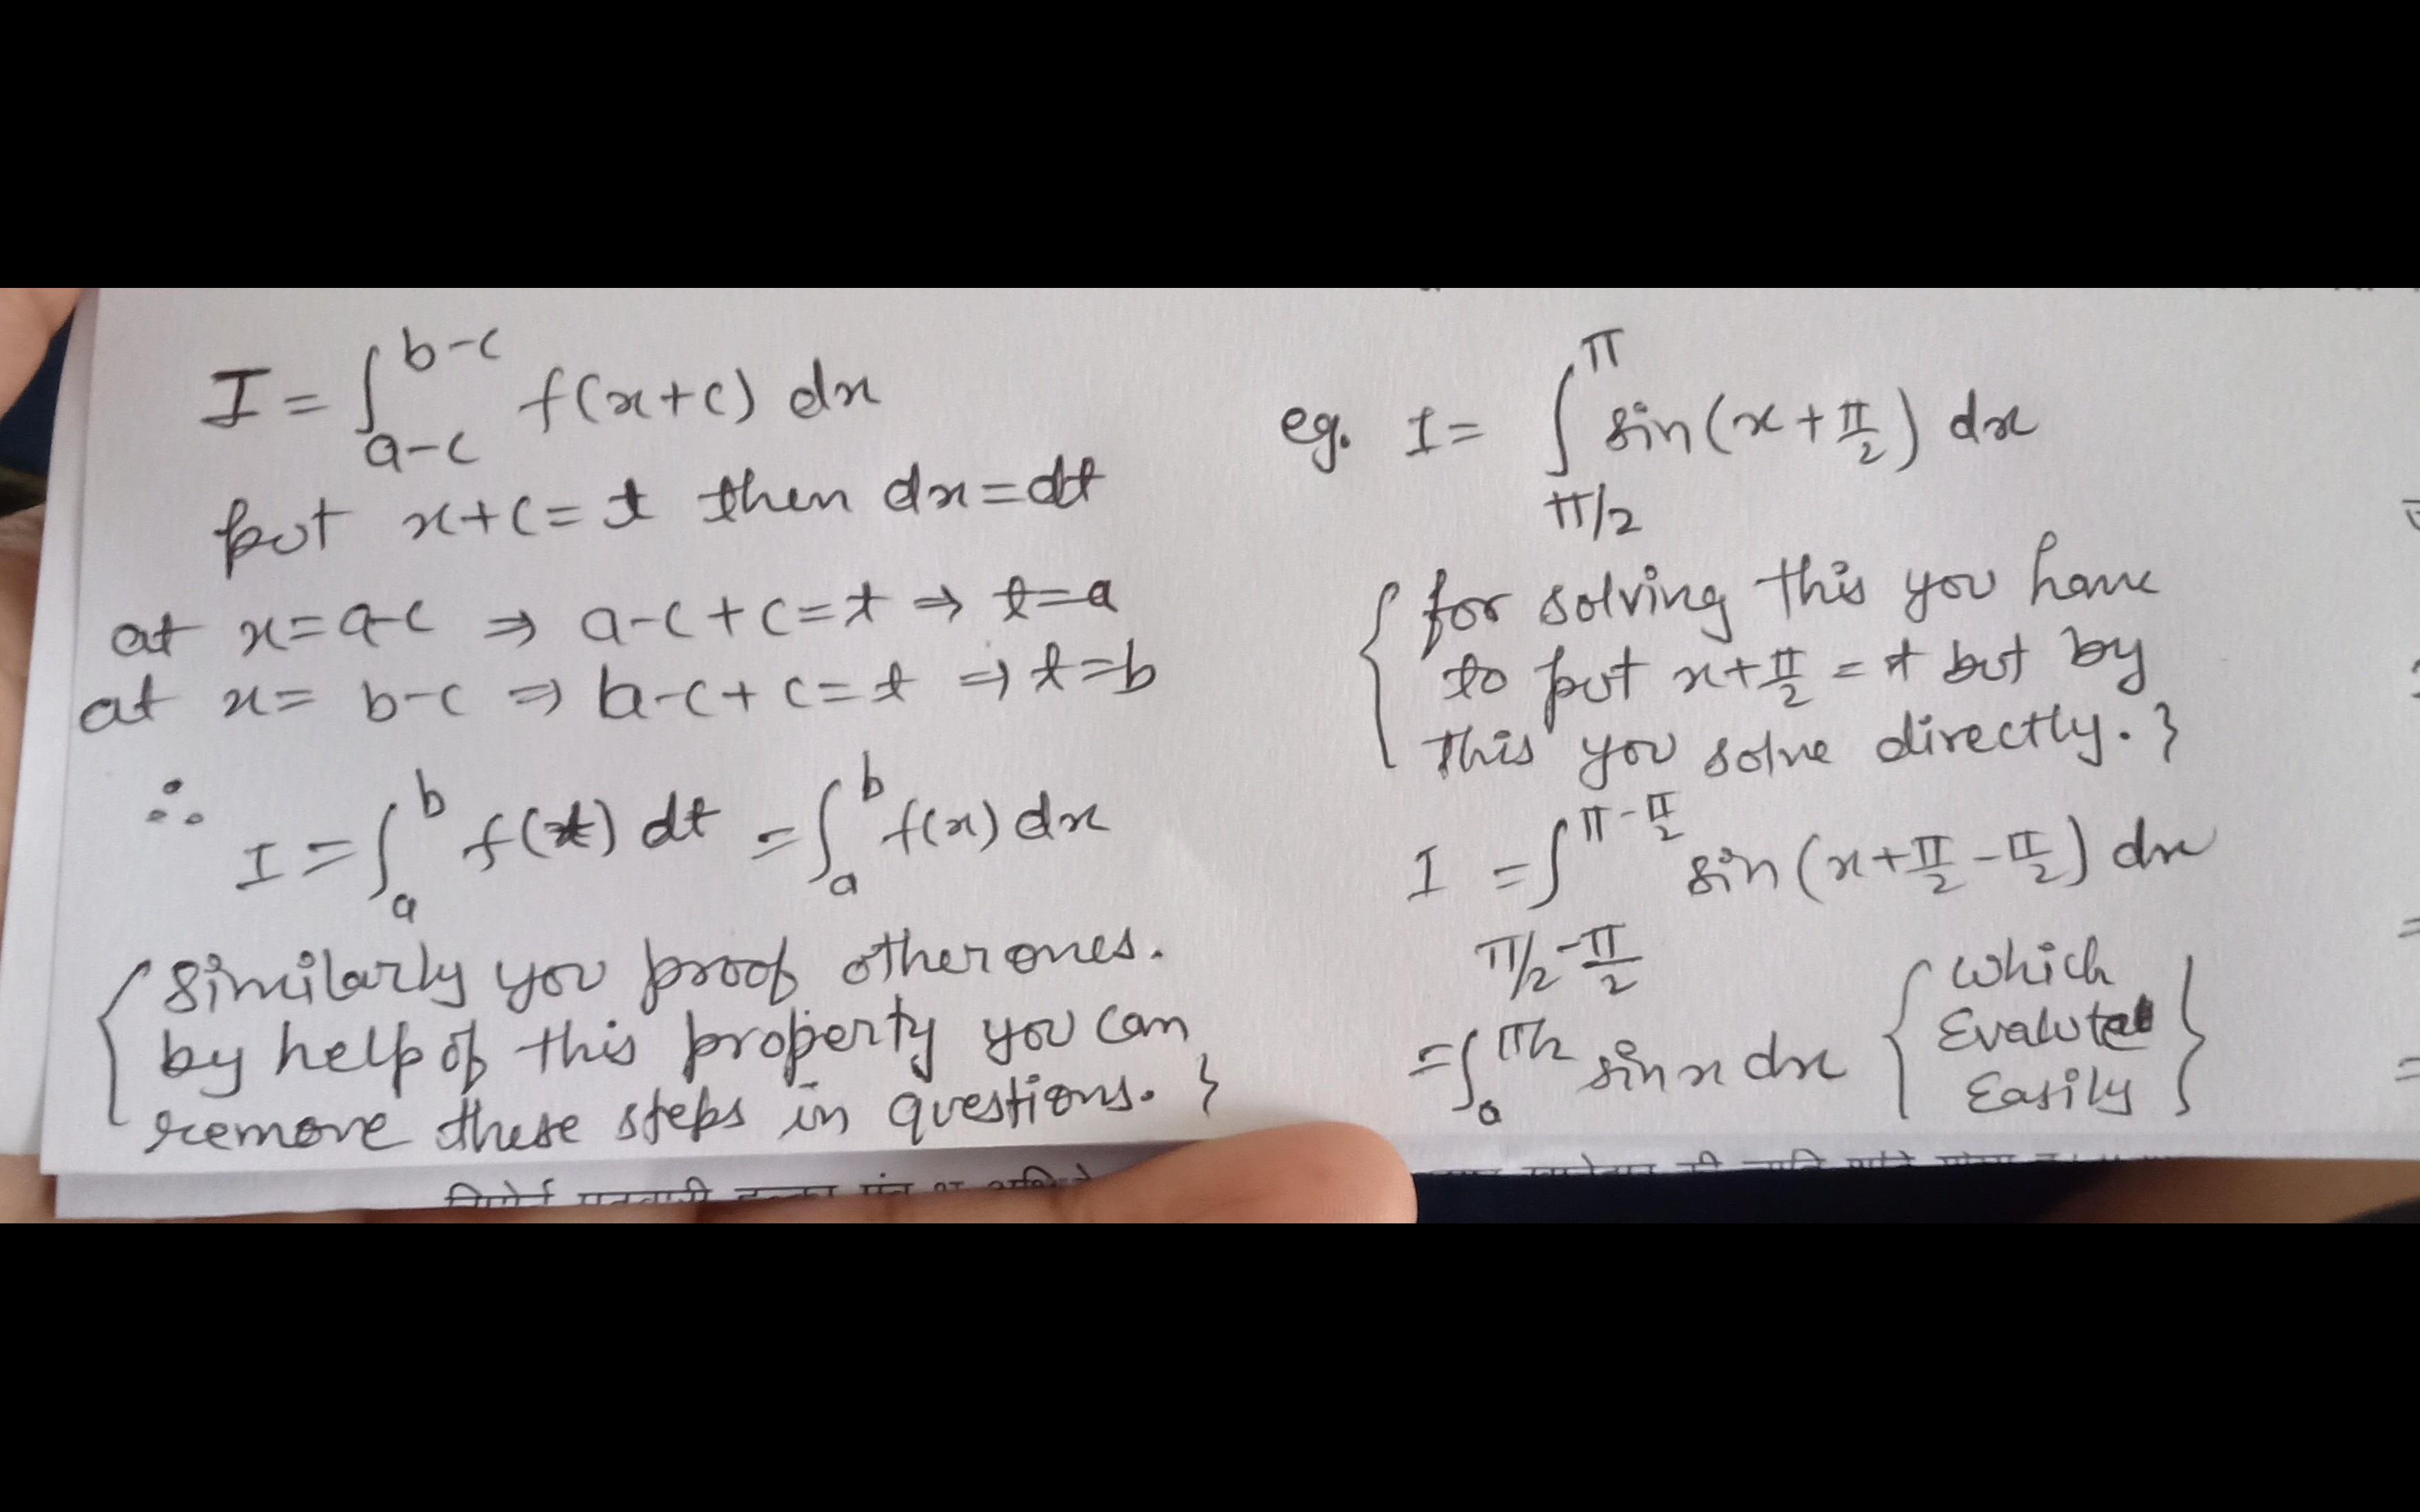 I = ∫_{a-c}^{b-c} f(x+c) dx
put x+c = t then dx = dt
at x = a-c ⇒ a-c+c = t ⇒ t = a
at x = b-c ⇒ b-c+c = t ⇒ t = b
∴ I = ∫_a^b f(t) dt = ∫_a^b f(x) dx
{ Similarly you proof other ones.
by help of this property you can
remove these steps in questions. }
eg. I = ∫_{π/2}^{π} sin(x + π/2) dx
{ for solving this you have
to put x + π/2 = t but by
this you solve directly. }
I = ∫_{π/2 - π/2}^{π - π/2} sin(x + π/2 - π/2) dx
= ∫_0^{π/2} sin x dx { Which
Evalute
Easily }